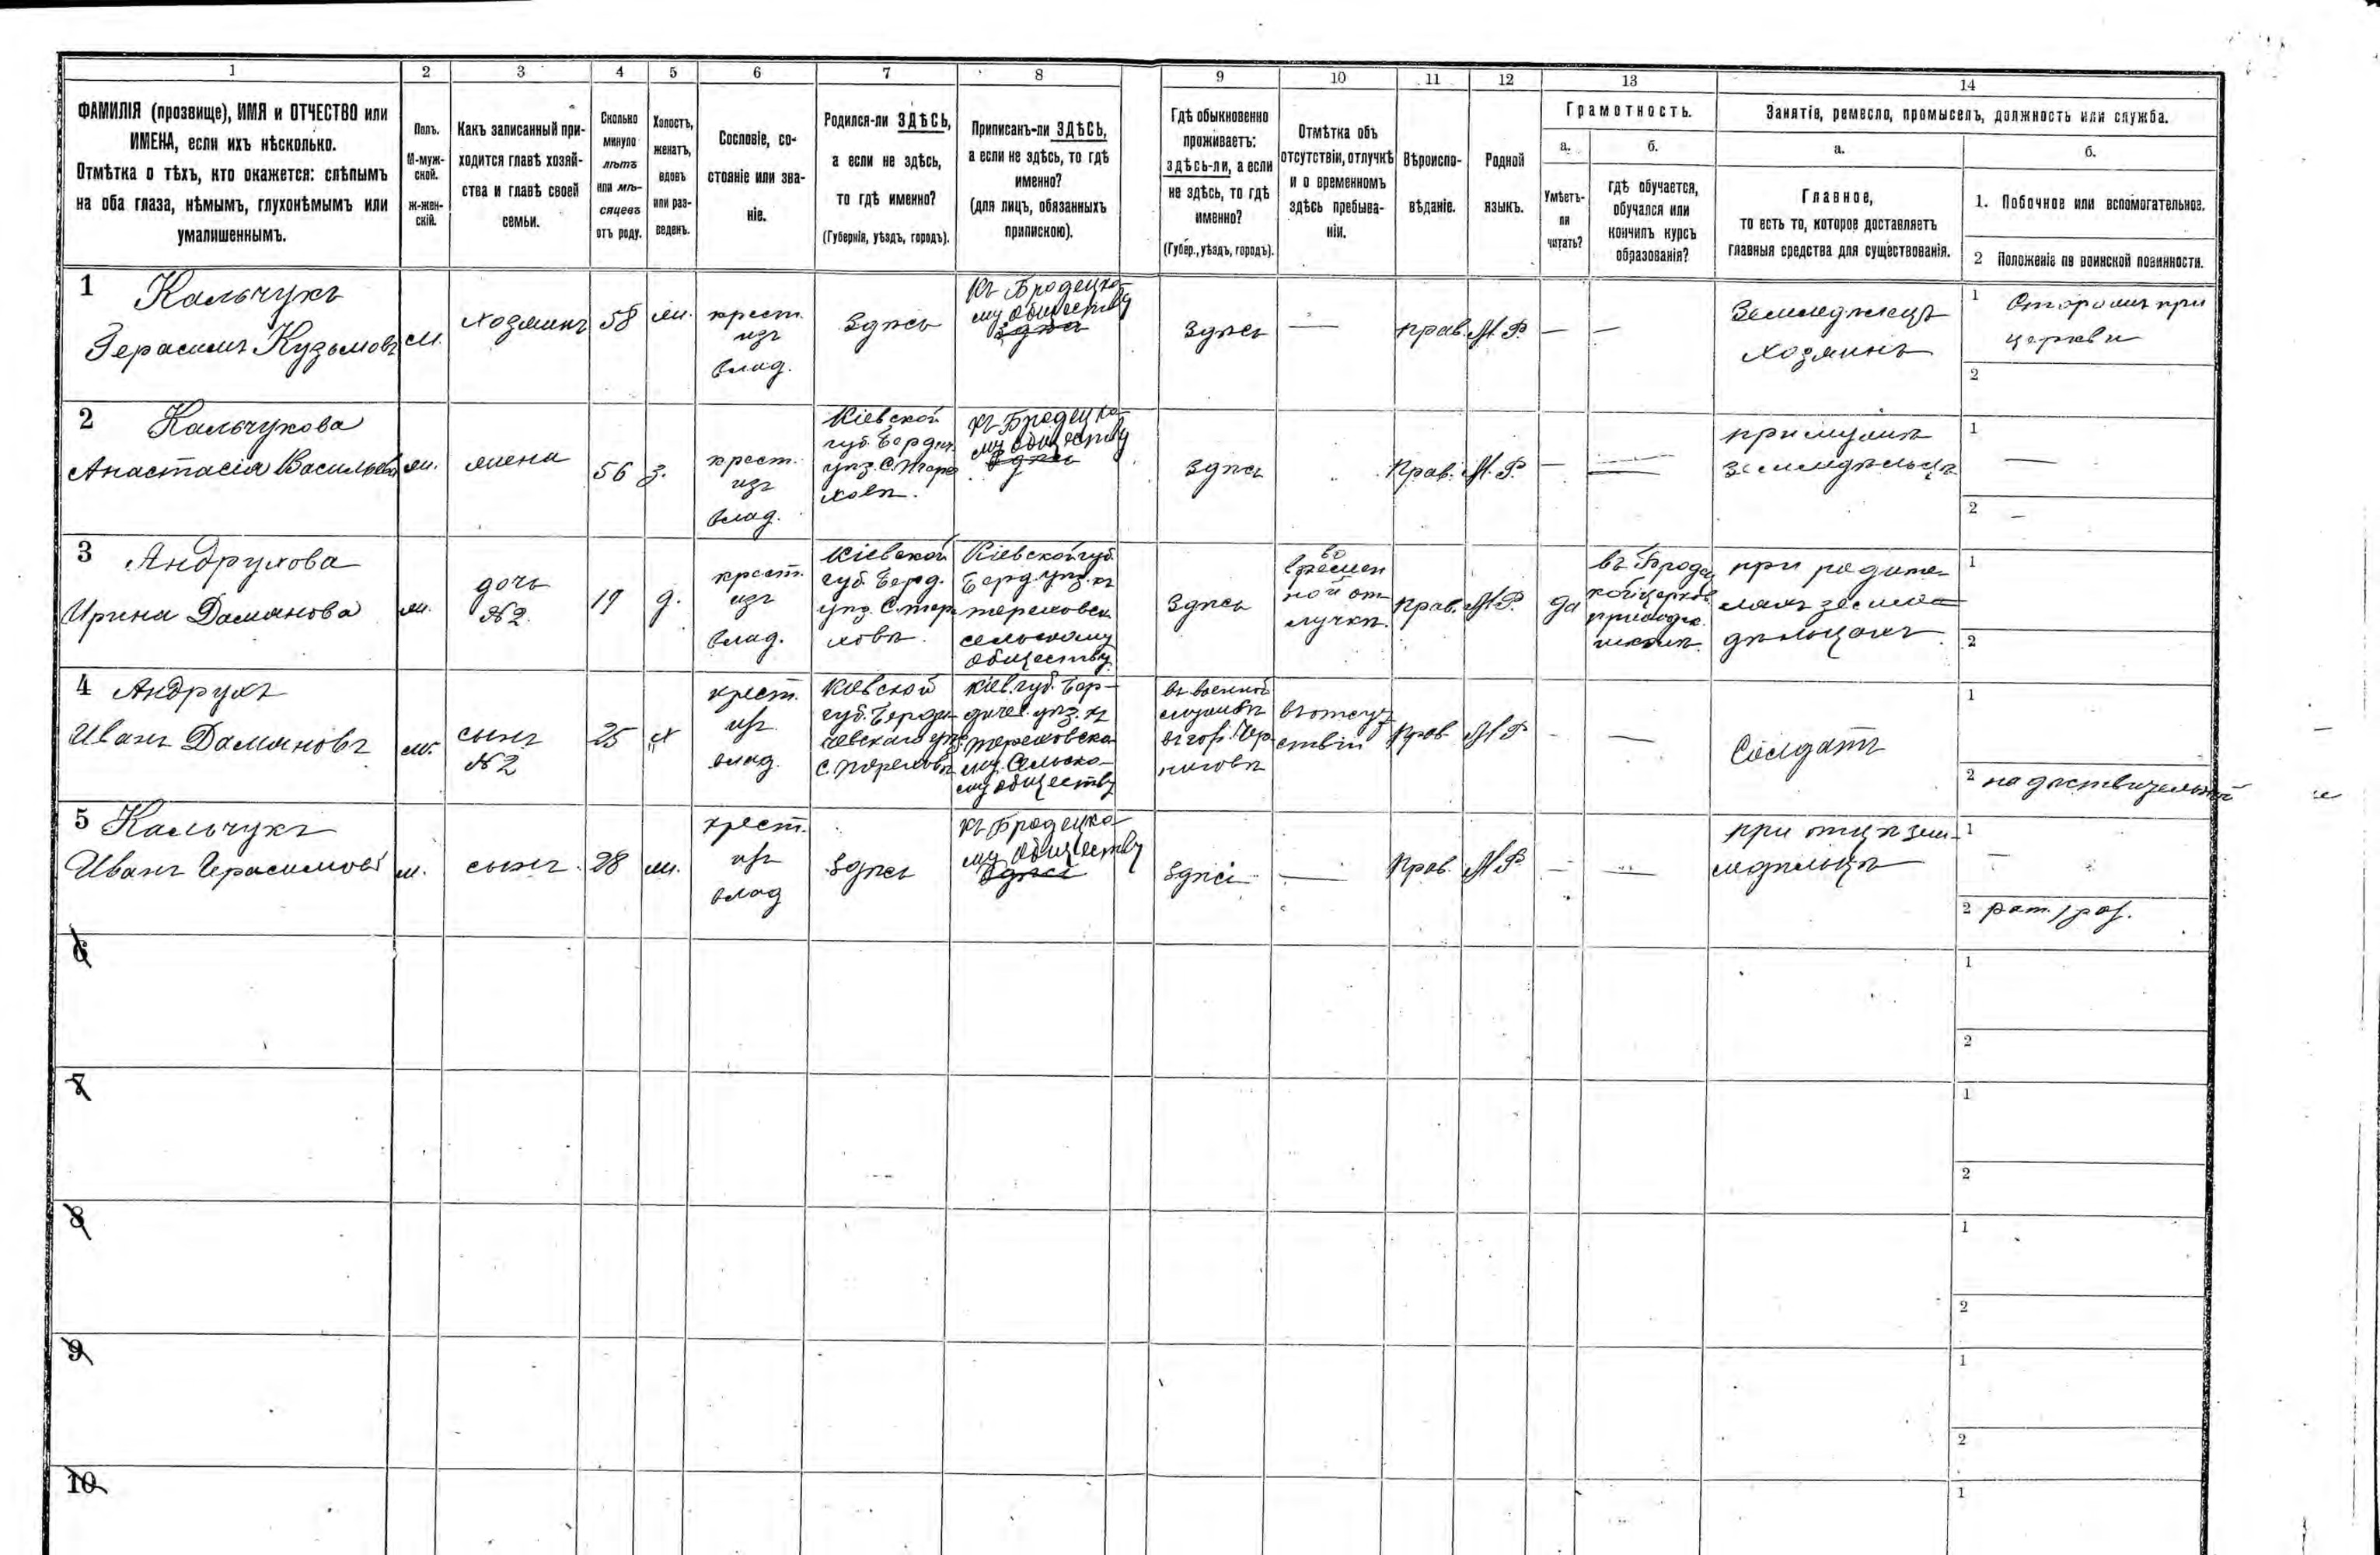 1 2 3 4 5 6 7 8 9 10 11 12 13 14
ФАМИЛІЯ (прозвище), ИМЯ и ОТЧЕСТВО или
ИМЕНА, если ихъ нѣсколько.
Отмѣтка о тѣхъ, кто окажется: слѣпымъ
на оба глаза, нѣмымъ, глухонѣмымъ или
умалишеннымъ.
Полъ.
М-муж-
ской.
ж-жен-
скій.
Какъ записанный при-
ходится главѣ хозяй-
ства и главѣ своей
семьи.
Сколько
минуло
лѣтъ
или мѣ-
сяцевъ
отъ роду.
Холостъ,
женатъ,
вдовъ
или раз-
веденъ.
Сословіе, со-
стояніе или зва-
ніе.
Родился-ли ЗДѢСЬ,
а если не здѣсь,
то гдѣ именно?
(Губернія, уѣздъ, городъ).
Приписанъ-ли ЗДѢСЬ,
а если не здѣсь, то гдѣ
именно?
(для лицъ, обязанныхъ
припискою).
Гдѣ обыкновенно
проживаетъ:
здѣсь-ли, а если
не здѣсь, то гдѣ
именно?
(Губер., уѣздъ, городъ).
Отмѣтка объ
отсутствіи, отлучкѣ
и о временномъ
здѣсь пребыва-
ніи.
Вѣроиспо-
вѣданіе.
Родной
языкъ.
Грамотность.
а.
Умѣетъ-
ли
читать?
б.
гдѣ обучается,
обучался или
кончилъ курсъ
образованія?
Занятія, ремесло, промыселъ, должность или служба.
а.
Главное,
то есть то, которое доставляетъ
главныя средства для существованія.
б.
1. Побочное или вспомогательное.
2 Положеніе по воинской повинности.
1 Кальчукъ
Герасимъ Кузьмовъ
м.
хозяинъ
58
ж.
крест.
изъ
влад.
Здѣсь
къ Бродецко-
му обществу
здѣсь
Здѣсь
—
прав.
М. Р.
—
—
Земледѣлецъ
хозяинъ
1 Сторожъ при
церкви
2
2 Кальчукова
Анастасія Васильева
ж.
жена
56
з.
крест.
изъ
влад.
Кіевской
губ. Бердич.
уѣз. С. Тере
ховѣ.
къ Бродецко-
му обществу
здѣсь
Здѣсь
Прав.
М. Р.
—
—
при мужѣ
земледѣльцѣ
1
—
2
—
3 Андрухова
Ирина Дамянова
ж.
дочь
№ 2.
19
д.
крест.
изъ
влад.
Кіевской
губ. Берд.
уѣз. С. тере
ховѣ.
Кіевской губ.
Берд. уѣз. къ
тереховск.
сельскому
обществу
Здѣсь
во
времен
ной от
лучкѣ.
прав.
М. Р.
да
въ Бродец
кой церков.
приходск.
школѣ.
при родите-
ляхъ земле-
дѣльцахъ
1
2
4 Андрухъ
Иванъ Дамяновъ
м.
сынъ
№ 2
25
х
крест.
из
влад.
Кіевской
губ. Берди-
чевскаго уѣз.
С. Тереховѣ
Кіев. губ. Бер-
дичев. уѣз. къ
тереховско-
му сельско-
му обществу
въ военной
службѣ
въ гор. Чер-
ниговѣ
въ отсут-
ствіи
Прав
М Р
-
—
Солдатъ
1
2 на дѣствительной
5 Кальчукъ
Иванъ Герасимовъ
м.
сынъ.
28
ж.
крест.
из
влад
Здѣсь
къ Бродецко-
му обществу
Здѣсь
Здѣсь
—
Прав.
М Р
—
—
при отцѣ зем-
ледѣльцѣ
1
—
2 рат. 1 раз.
6
1
2
7
1
2
8
1
2
9
1
2
10
1